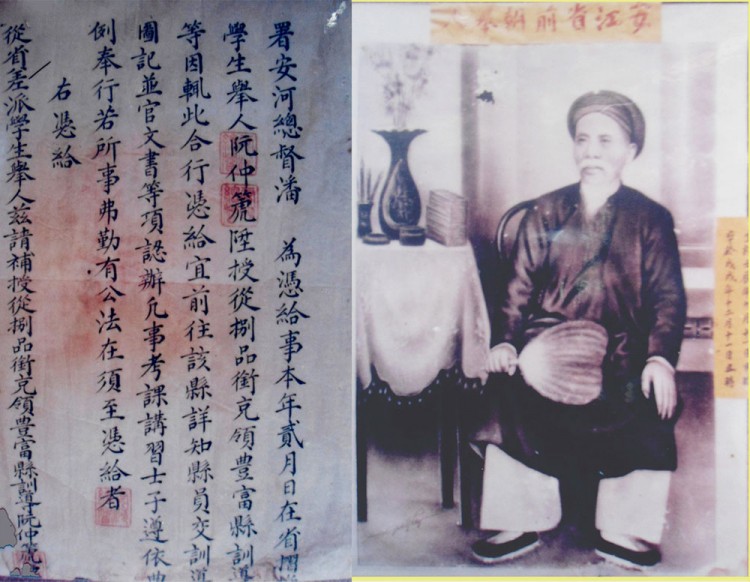 署安河總督潘 為憑給事本年貳月日在省
學生舉人阮仲箎陞授從捌品銜充領豊富縣訓導
等因輒此合行憑給宜前往該縣詳知縣員交訓導
圖記並官文書等項認辦凡事考課講習士子遵依
例奉行若所事弗勤有公法在須至憑給者
右憑給
從省差派學生舉人茲請補授從捌品銜充領豊富縣訓導阮仲箎
安江省前
年十二月十一日